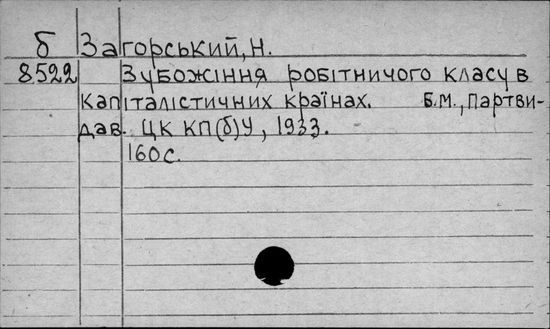 б Загорський, Н.
8522 Зубожіння робітничого класу в
капіталістичних країнах. Б.М., Партви-
дав. ЦК КП(б)У, 1933.
160с.